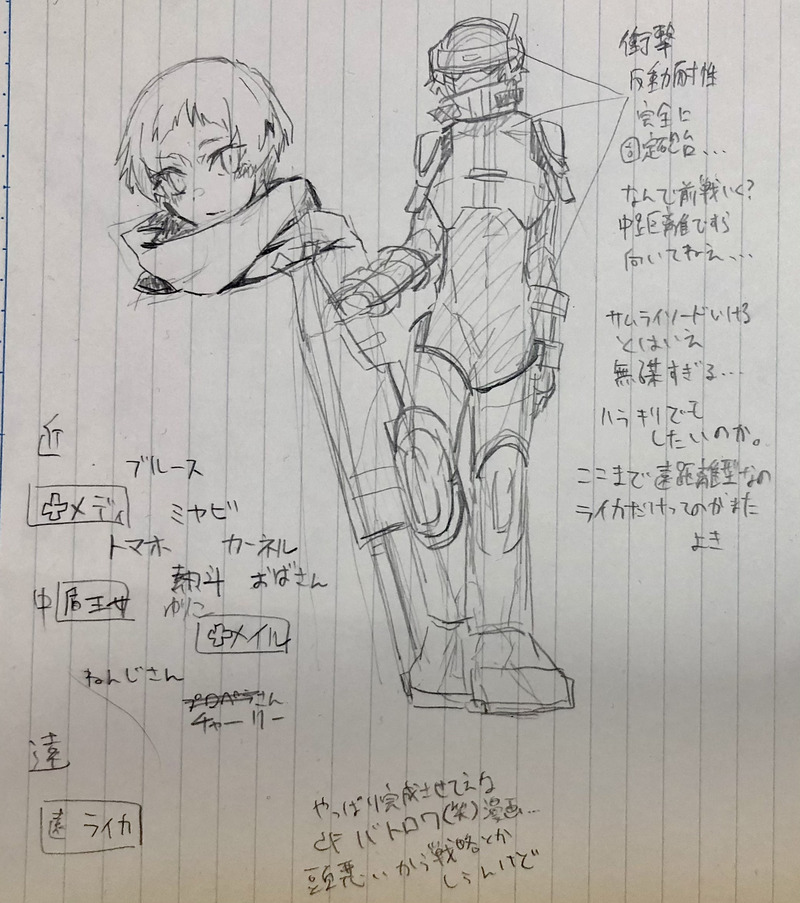 衝撃
反動耐性
完全に
固定砲台...
なんで前戦いく?
中距離ですら
向いてねえ...
サムライソードいける
とはいえ
無謀すぎる...
ハラキリでも
したいのか。
ここまで遠距離型なの
ライカだけってのがまた
よき
近
ブルース
メディ
ミヤビ
トマホ カーネル
おばさん
中
ゆりこ
メイル
ねんじさん
プロペラさん
チャーリー
遠
遠 ライカ
やっぱり完成させてえな
バトロワ(笑)漫画...
頭悪いから戦略とか
しらんけど